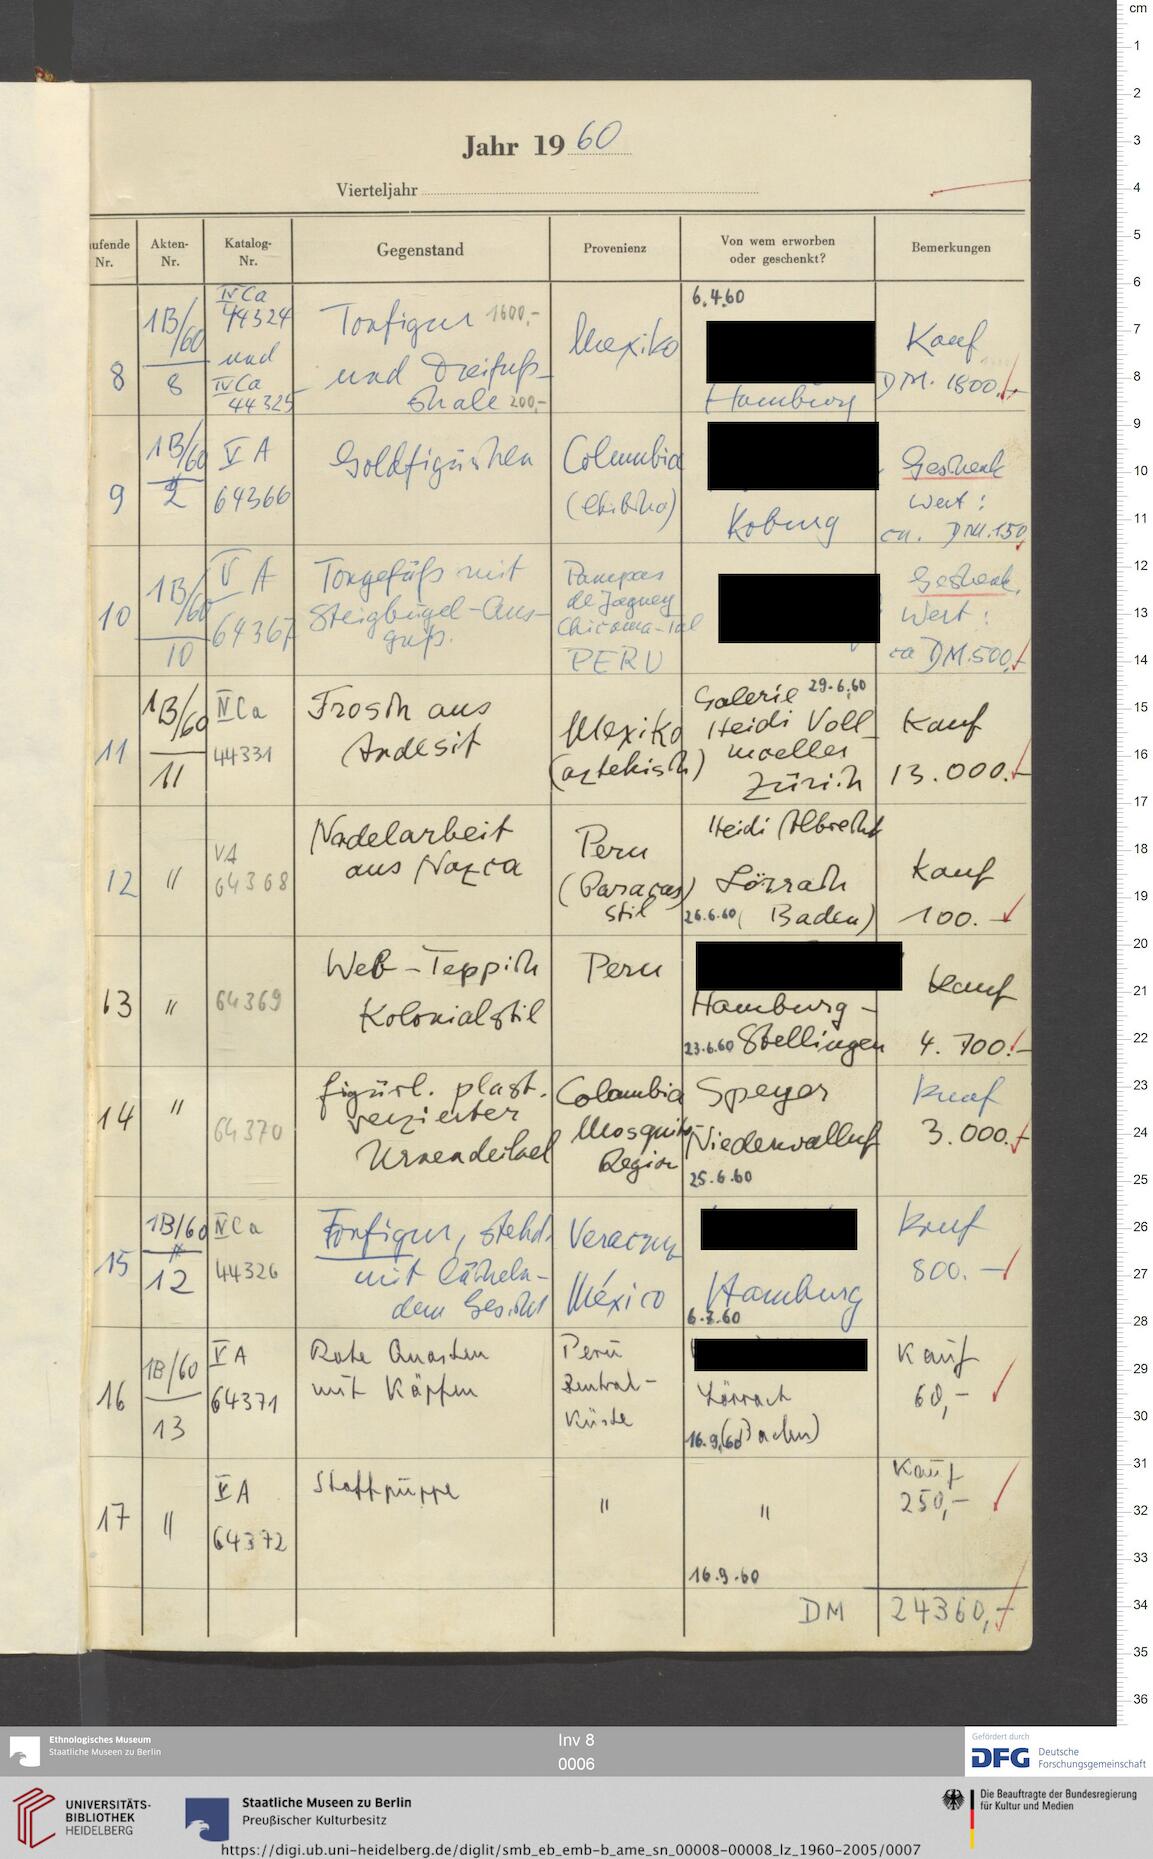 Jahr 1960
Vierteljahr
aufende Nr.
Akten-Nr.
Katalog-Nr.
Gegenstand
Provenienz
Von wem erworben oder geschenkt?
Bemerkungen
8
1B/60
8
IV Ca
44324
und
IV Ca
44325
Tonfigur 1600,-
und Dreifuß-
schale 200,-
Mexiko
6.4.60
Hamburg
Kauf
DM. 1800.-
9
1B/60
V A
64366
Goldfigürchen
Columbia
(Chibcha)
Koburg
Geschenk
Wert:
ca. DM.150
10
1B/60
10
V A
64367
Tongefäß mit
Steigbügel-Aus-
guß.
Pampas
de Jaguey
Chicama-Tal
PERU
Geschenk,
Wert:
ca DM.500,-
11
1B/60
11
IV Ca
44331
Frosch aus
Andesit
Mexiko
(aztekisch)
Galerie 29.6.60
Heidi Voll-
moeller
Zürich
Kauf
13.000.-
12
"
VA
64368
Nadelarbeit
aus Nazca
Peru
(Paracas
stil)
Heidi Albrecht
Lörrach
26.6.60 (Baden)
Kauf
100.-
13
"
64369
Web-Teppich
Kolonialstil
Peru
Hamburg-
23.6.60 Stellingen
Kauf
4.700.-
14
"
64370
figürl. plast.
verzierter
Urnendeckel
Colombia
Mosquito-
Region
Speyer
Niederwalluf
25.6.60
Kauf
3.000.-
15
1B/60
12
IV Ca
44326
Tonfigur, stehd.
mit lächeln-
dem Gesicht
Veracruz
México
Hamburg
6.7.60
Kauf
800.-
16
1B/60
13
V A
64371
Rote Quasten
mit Köpfen
Perú
Zentral-
Küste
Lörrach
16.9.60 (Baden)
Kauf
60,-
17
"
V A
64372
Stoffpuppe
"
"
16.9.60
Kauf
250,-
DM 24360,-
cm
1
2
3
4
5
6
7
8
9
10
11
12
13
14
15
16
17
18
19
20
21
22
23
24
25
26
27
28
29
30
31
32
33
34
35
36
Ethnologisches Museum
Staatliche Museen zu Berlin
Inv 8
0006
Gefördert durch
DFG Deutsche
Forschungsgemeinschaft
UNIVERSITÄTS-
BIBLIOTHEK
HEIDELBERG
Staatliche Museen zu Berlin
Preußischer Kulturbesitz
Die Beauftragte der Bundesregierung
für Kultur und Medien
https://digi.ub.uni-heidelberg.de/diglit/smb_eb_emb-b_ame_sn_00008-00008_lz_1960-2005/0007